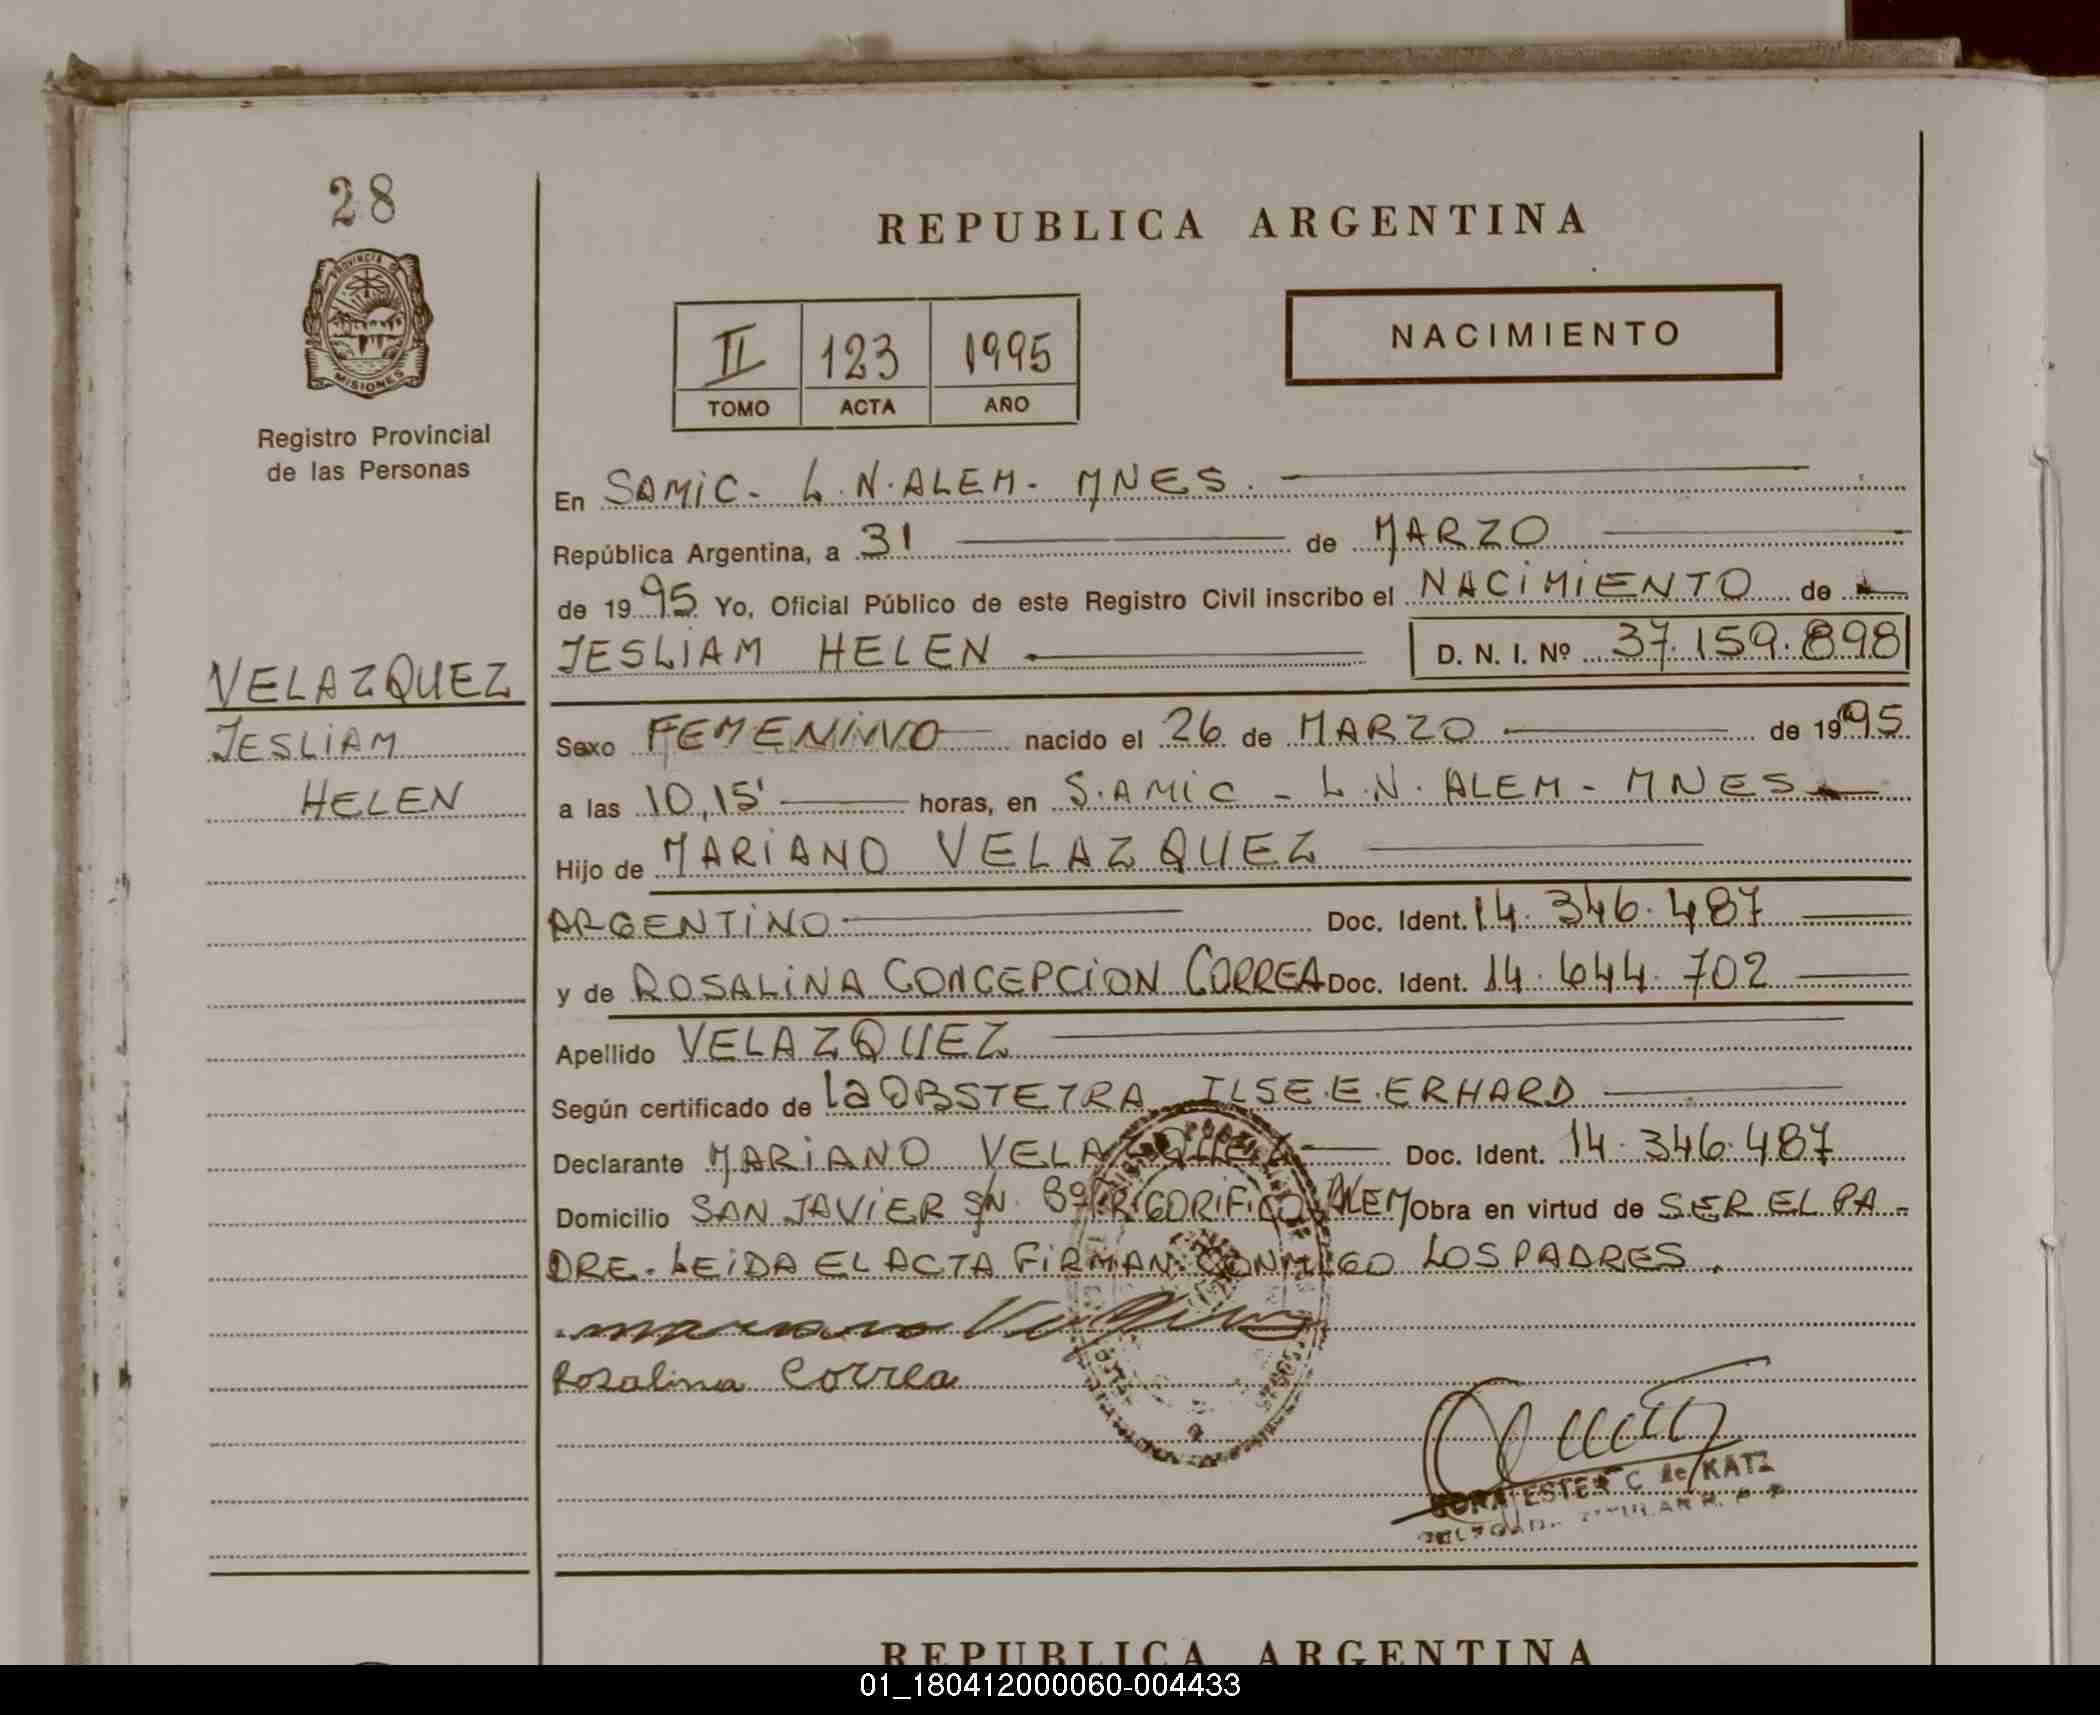 28
PROVINCIA DE
MISIONES
Registro Provincial
de las Personas
VELAZQUEZ
JESLIAM
HELEN
REPUBLICA ARGENTINA
II 123 1995
TOMO ACTA AÑO
NACIMIENTO
En SAMIC - L.N. ALEM - MNES.
República Argentina, a 31 de MARZO
de 1995 Yo, Oficial Público de este Registro Civil inscribo el NACIMIENTO de
JESLIAM HELEN D. N. I. Nº 37.159.898
Sexo FEMENINO nacido el 26 de MARZO de 1995
a las 10,15' horas, en S.AMIC - L.N. ALEM - MNES
Hijo de MARIANO VELAZQUEZ
ARGENTINO Doc. Ident. 14.346.487
y de ROSALINA CONCEPCION CORREA Doc. Ident. 14.644.702
Apellido VELAZQUEZ
Según certificado de la OBSTETRA ILSE.E.ERHARD
Declarante MARIANO VELAZQUEZ Doc. Ident. 14.346.487
Domicilio SAN JAVIER S/N. Bº FRIGORIFICO ALEM Obra en virtud de SER EL PA-
DRE. LEIDA EL ACTA FIRMAN CONMIGO LOS PADRES.
mariano
Rosalina Correa
ESTER C de KATZ
TITULAR R. P. P.
REPUBLICA ARGENTINA
01_180412000060-004433